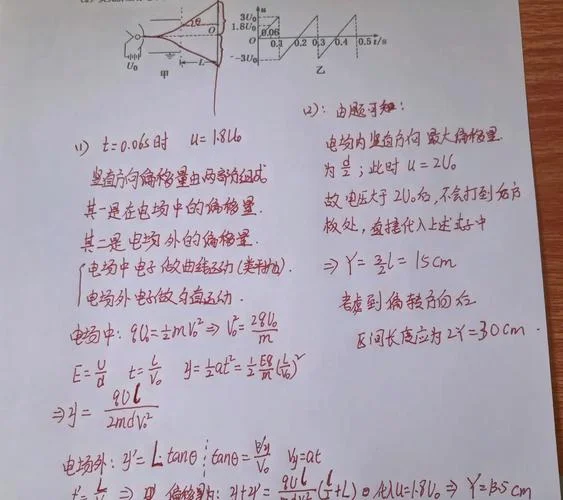 3U₀
1.8U₀
O
-3U₀
u
0.06
0.1 0.2 0.3 0.4 0.5 t/s
θ
O
U₀
L
甲
乙
(1) t=0.06s时 u=1.8U₀
竖直方向偏移量由两部分组成
其一是在电场中的偏移量.
其二是电场外的偏移量.
电场中电子做曲线运动(类平抛).
电场外电子做匀直运动.
电场中: qU₀=½mv₀² ⇒ v₀²=2qU₀/m
E=U/d t=l/v₀ y=½at²=½Eq/m(l/v₀)²
⇒y=qUl/2mdv₀²
电场外: y'=L·tanθ tanθ=vy/v₀ vy=at
偏移量为: y+y'=qUl/mdv₀²(l/2+L) 代入u=1.8U₀ ⇒ Y=13.5cm
(2): 由题可知:
电场内竖直方向最大偏移量
为d/2; 此时u=2U₀
故电压大于2U₀后,不会打到右方
板处,直接代入上述式子中
⇒Y=3/2l=15cm
考虑到偏转方向后
区间长度应为2Y=30cm.